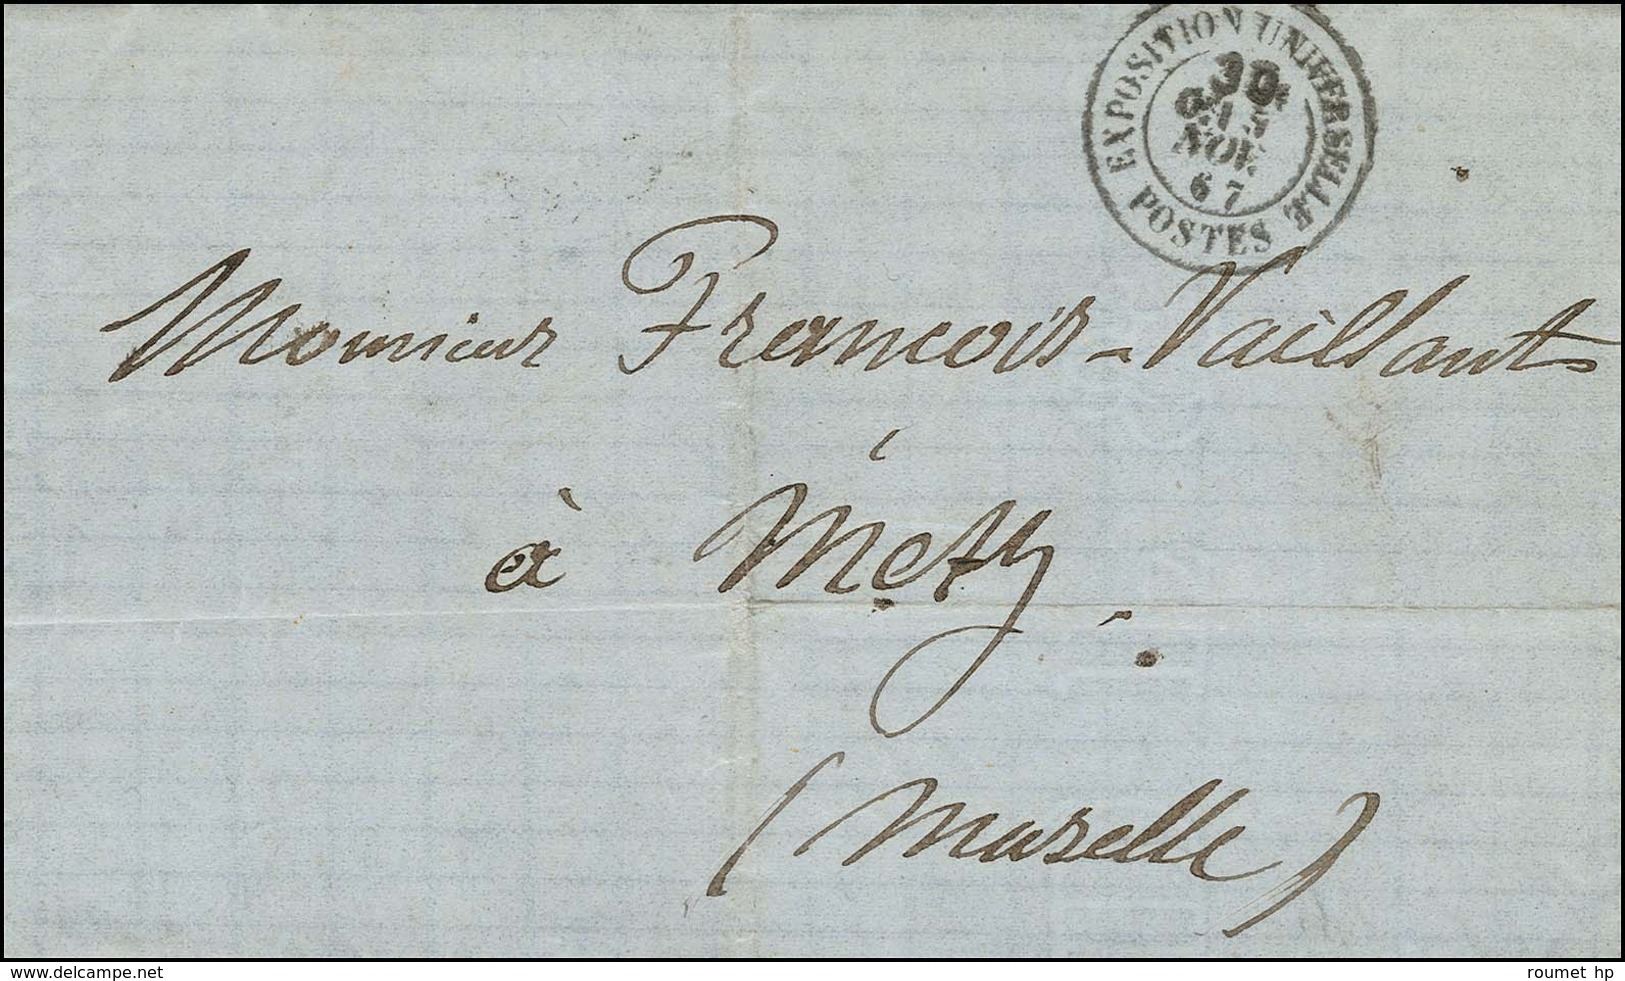 EXPOSITION UNIVERSELLE
NOV.
67
POSTES
Monsieur François-Vaillant
à Metz.
(Moselle)
www.delcampe.net
roumet hp